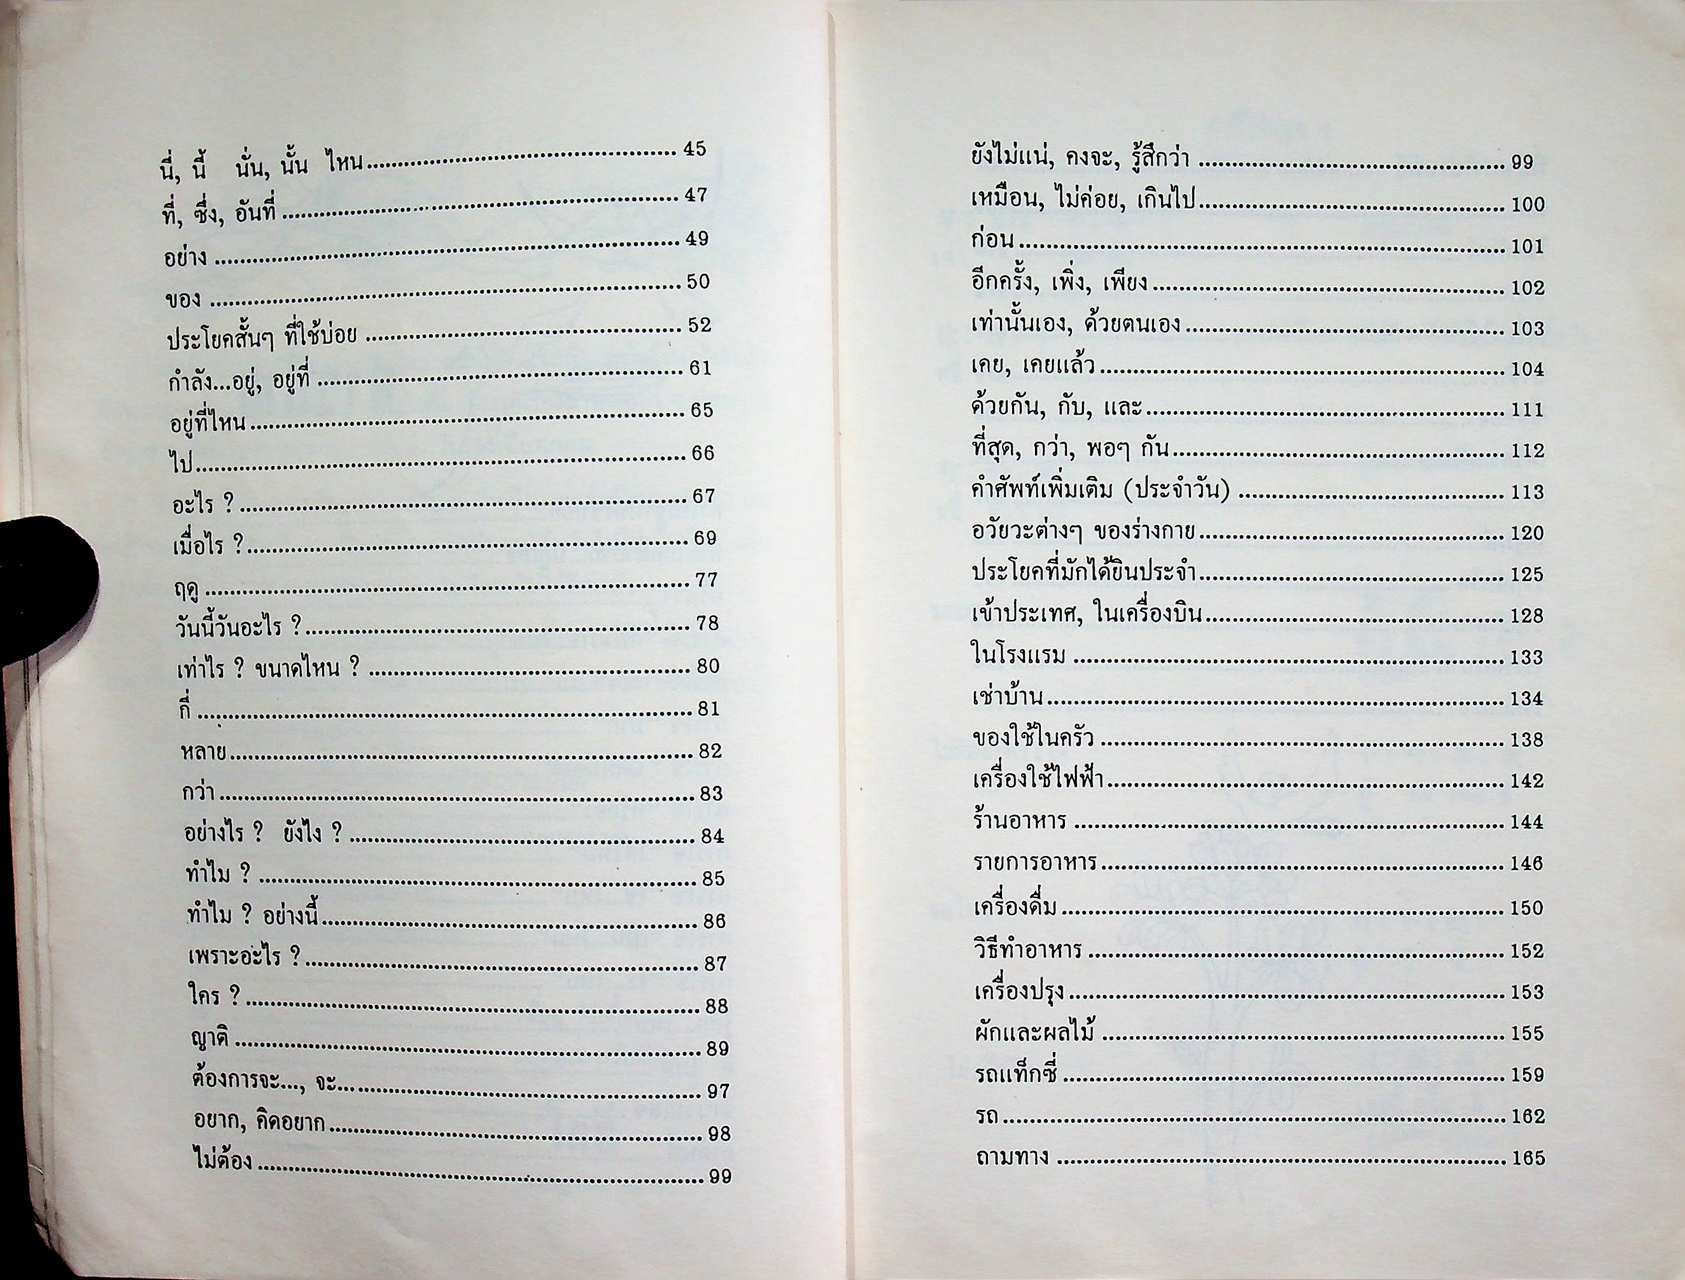 นี่, นี้ นั่น, นั้น ไหน 45
ที่, ซึ่ง, อันที่ 47
อย่าง 49
ของ 50
ประโยคสั้นๆ ที่ใช้บ่อย 52
กำลัง...อยู่, อยู่ที่ 61
อยู่ที่ไหน 65
ไป 66
อะไร ? 67
เมื่อไร ? 69
ฤดู 77
วันนี้วันอะไร ? 78
เท่าไร ? ขนาดไหน ? 80
กี่ 81
หลาย 82
กว่า 83
อย่างไร ? ยังไง ? 84
ทำไม ? 85
ทำไม ? อย่างนี้ 86
เพราะอะไร ? 87
ใคร ? 88
ญาติ 89
ต้องการจะ..., จะ... 97
อยาก, คิดอยาก 98
ไม่ต้อง 99
ยังไม่แน่, คงจะ, รู้สึกว่า 99
เหมือน, ไม่ค่อย, เกินไป 100
ก่อน 101
อีกครั้ง, เพิ่ง, เพียง 102
เท่านั้นเอง, ด้วยตนเอง 103
เคย, เคยแล้ว 104
ด้วยกัน, กับ, และ 111
ที่สุด, กว่า, พอๆ กัน 112
คำศัพท์เพิ่มเติม (ประจำวัน) 113
อวัยวะต่างๆ ของร่างกาย 120
ประโยคที่มักได้ยินประจำ 125
เข้าประเทศ, ในเครื่องบิน 128
ในโรงแรม 133
เช่าบ้าน 134
ของใช้ในครัว 138
เครื่องใช้ไฟฟ้า 142
ร้านอาหาร 144
รายการอาหาร 146
เครื่องดื่ม 150
วิธีทำอาหาร 152
เครื่องปรุง 153
ผักและผลไม้ 155
รถแท็กซี่ 159
รถ 162
ถามทาง 165